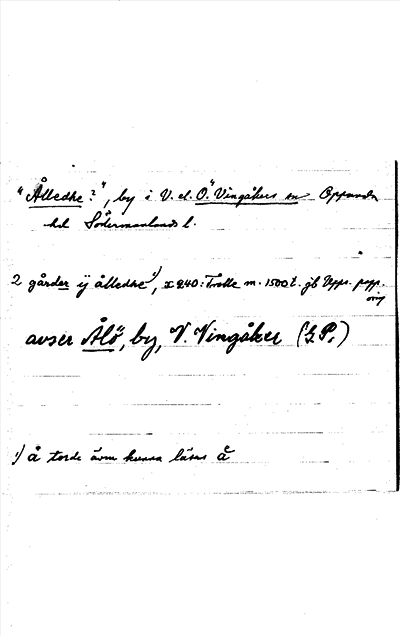 "Ålledke?", by i V. el. Ö. Vingåkers sn Oppunda
hd Södermanlands l.
2 gårder ÿ ålledke¹), x 240: Trolle m. 1500 t. jb Upps. papp.
avser Ålö, by, V. Vingåker (G.P.)
¹) å torde även kunna läsas ä